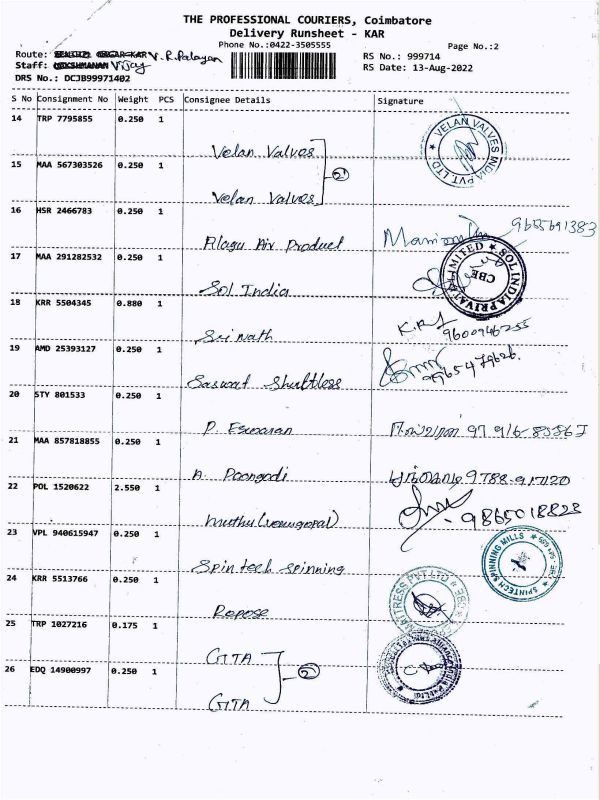 THE PROFESSIONAL COURIERS, Coimbatore
Delivery Runsheet - KAR
Phone No.:0422-3505555
Page No.:2
Route: V.R. Palayam
RS No.: 999714
Staff: Vijay
RS Date: 13-Aug-2022
DRS No.: DCJB99971402
S No Consignment No Weight PCS Consignee Details Signature
14 TRP 7795855 0.250 1
Velan Valves VELAN VALVES INDIA PVT. LTD.
15 MAA 567303526 0.250 1
2
Velan Valves
16 HSR 2466783 0.250 1
Alagu Air Product 9655691383
17 MAA 291282532 0.250 1
Sol India SOL INDIA PRIVATE LIMITED CBE
18 KRR 5504345 0.880 1
Sri nath K.R.J 9600946255
19 AMD 25393127 0.250 1
Saswat Shuttless
20 STY 801533 0.250 1
P. Eswaran
21 MAA 857818855 0.250 1
A. Poongodi
22 POL 1520622 2.550 1
muthu (venugopal) - 9865018828
23 VPL 940615947 0.250 1
Spin tech spinning SPINTECH SPINNING MILLS
24 KRR 5513766 0.250 1
Repose MATTRESS PVT LTD CBE
25 TRP 1027216 0.175 1
GTTA
26 EDQ 14900997 0.250 1
2
GTTA